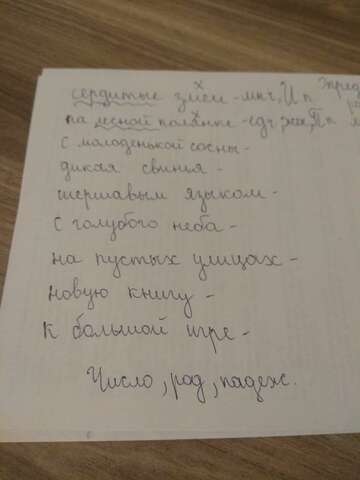 сердитые змеи - мн.ч, И п
на лесной полянке - ед ч, ж.р, П п
с молоденькой сосны -
дикая свинья -
шершавым языком -
с голубого неба -
на пустых улицах -
новую книгу -
к большой игре -
Число, род, падеж.